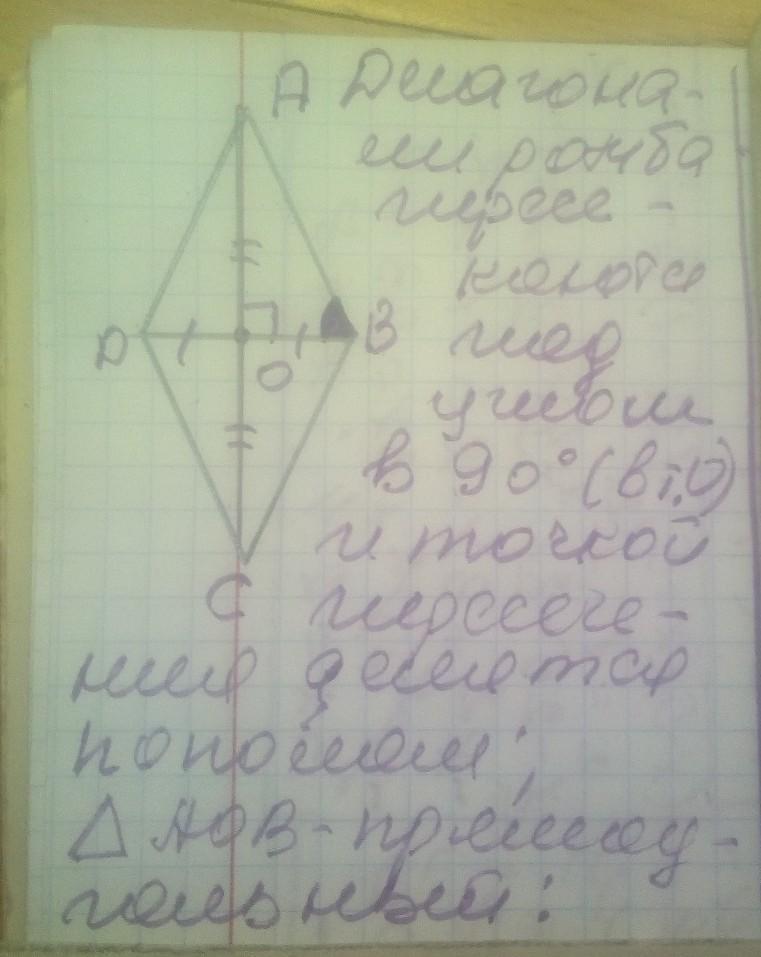 A Диагона-
ли ромба
пересе-
каются
D O B под
углом
в 90° (в т.О)
и точкой
C пересече-
ния делятся
пополам;
△ AOB - прямоу-
гольный: